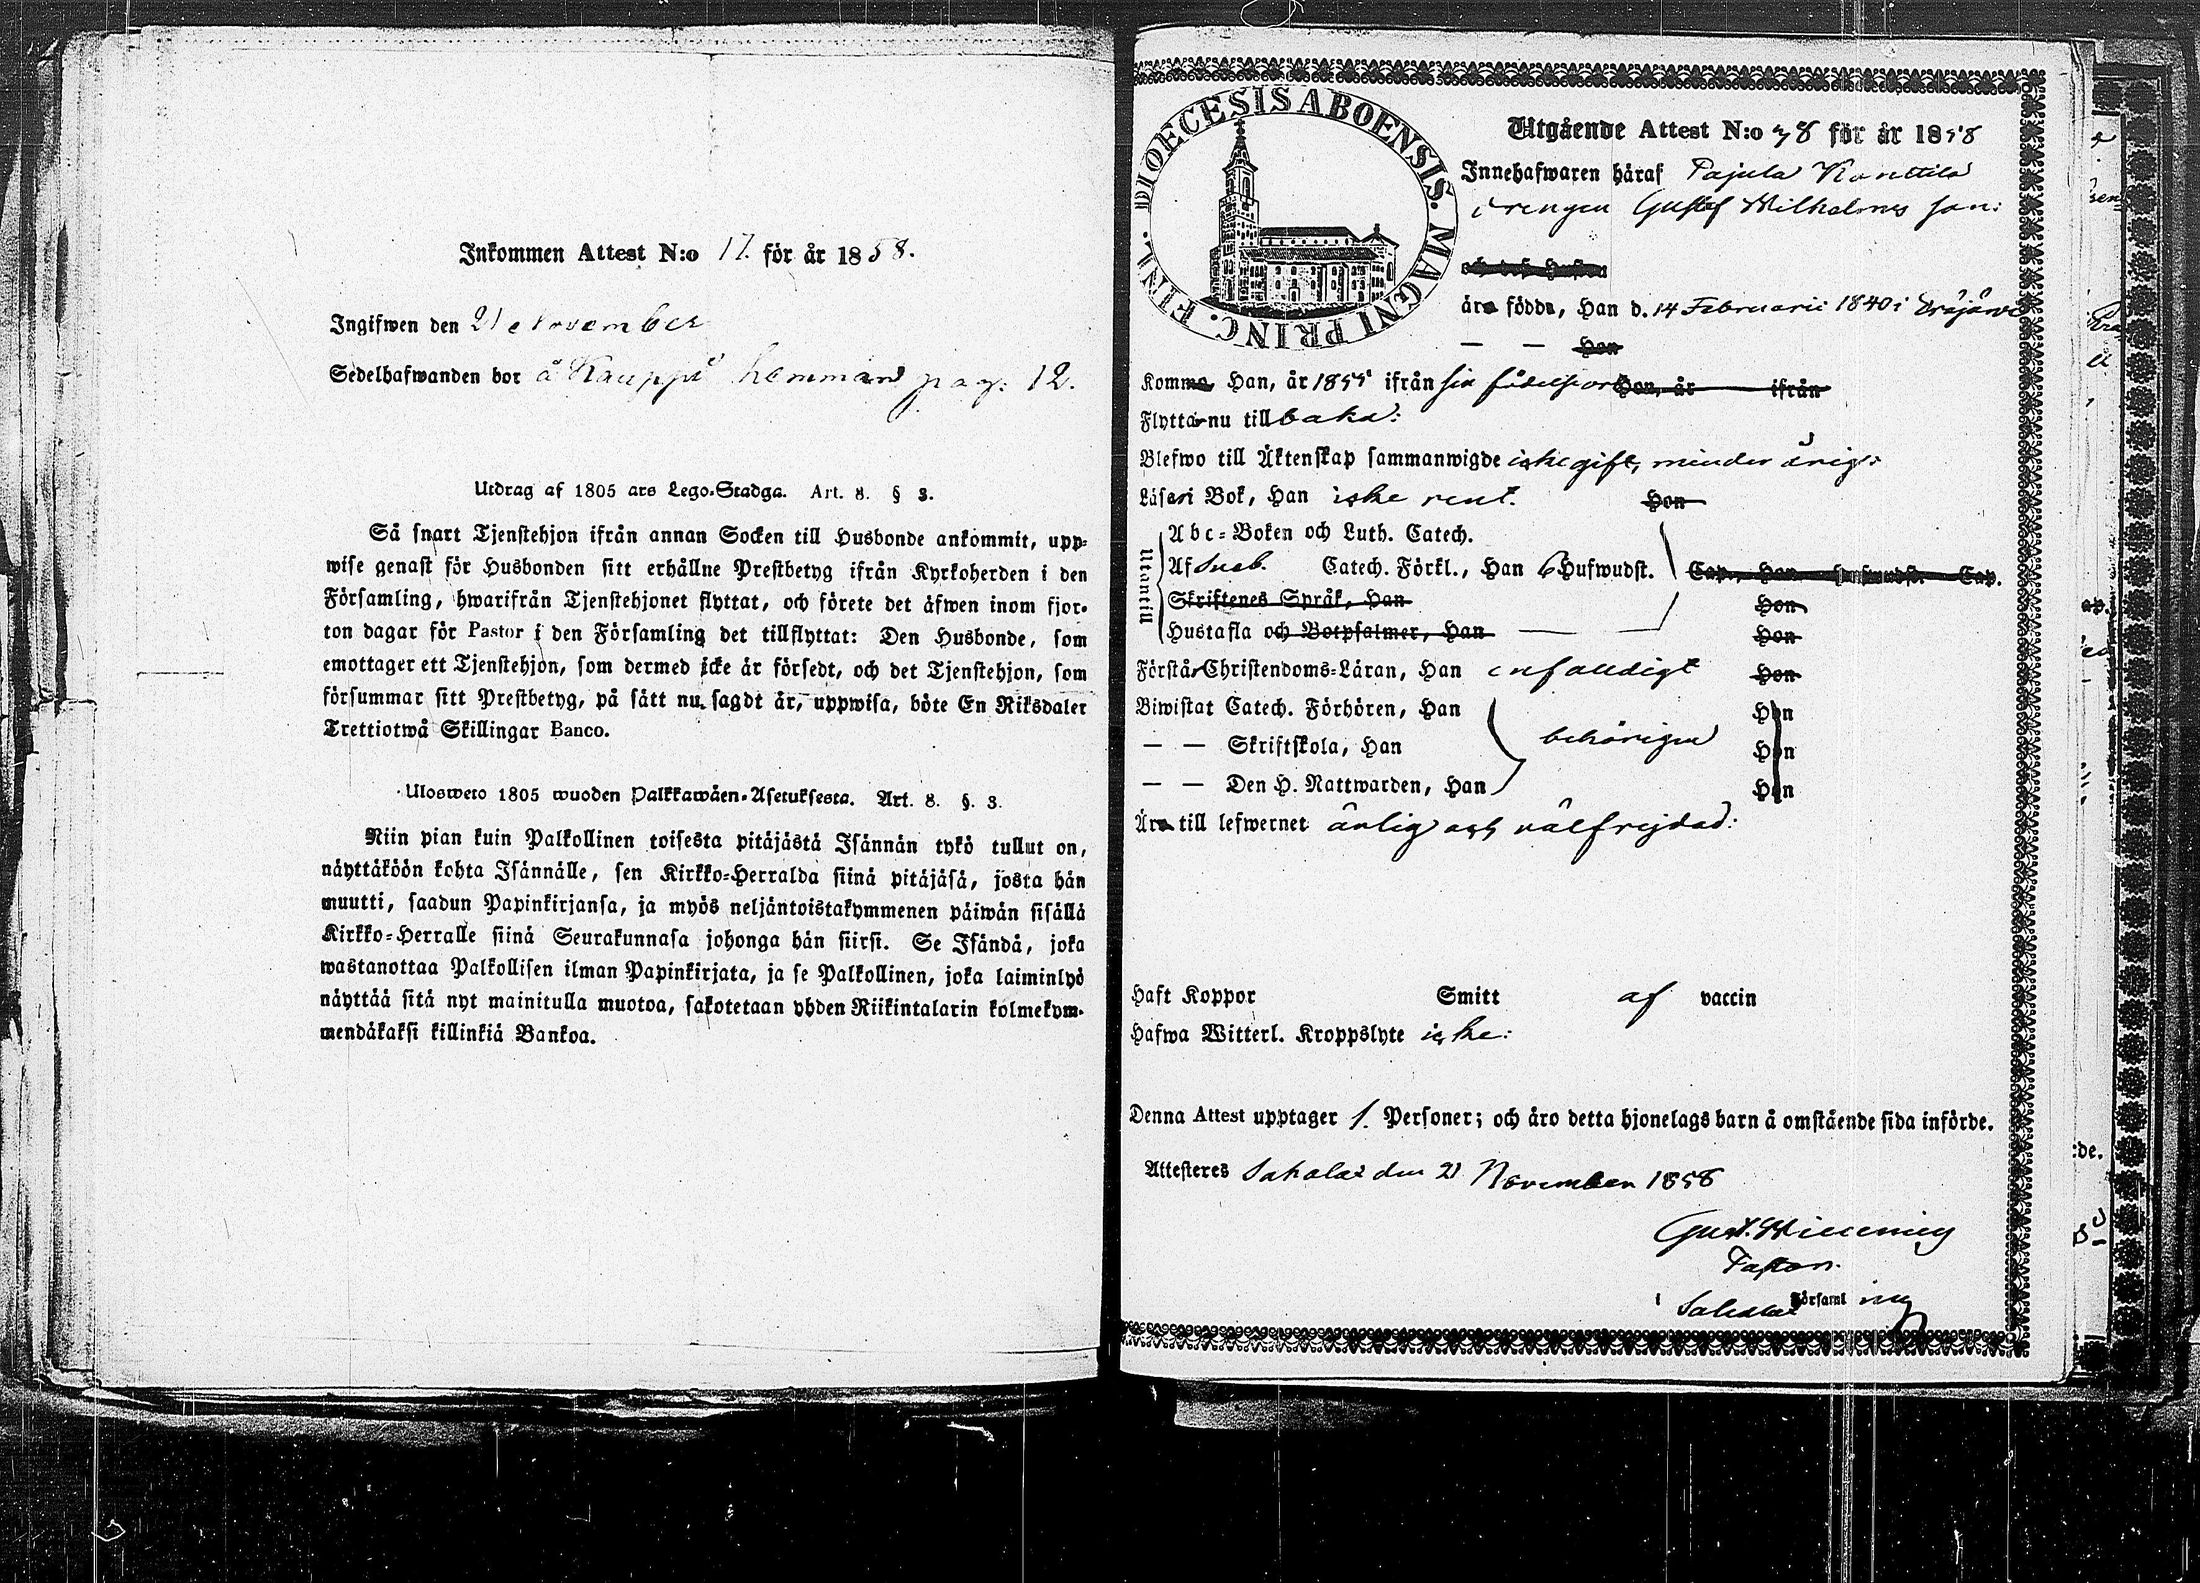 Inkommen Attest N:o 17. för år 1858.
Ingifwen den 21 November
Sedelhafwanden bor å Kauppi hemman pag: 12.
Utdrag af 1805 ars Lego-Stadga. Art. 8. § 3.
Så snart Tjenstehjon ifrån annan Socken till Husbonde ankommit, upp-
wise genast för Husbonden sitt erhållne Prestbetyg ifrån Kyrkoherden i den
Församling, hwarifrån Tjenstehjonet flyttat, och förete det äfwen inom fjor-
ton dagar för Pastor i den Församling det tillflyttat: Den Husbonde, som
emottager ett Tjenstehjon, som dermed icke är försedt, och det Tjenstehjon, som
försummar sitt Prestbetyg, på sätt nu sagdt är, uppwisa, böte En Riksdaler
Trettiotwå Skillingar Banco.
Ulosweto 1805 wuoden Palkkawäen-Asetuksesta. Art. 8. §. 3.
Niin pian kuin Palkollinen toisesta pitäjästä Isännän tykö tullut on,
näyttäköön kohta Isännälle, sen Kirkko-Herralda siinä pitäjäsä, josta hän
muutti, saadun Papinkirjansa, ja myös neljäntoistakymmenen päiwän sisällä
Kirkko-Herralle siinä Seurakunnasa johonga hän siirsi. Se Isändä, joka
wastanottaa Palkollisen ilman Papinkirjata, ja se Palkollinen, joka laiminlyö
näyttää sitä nyt mainitulla muotoa, sakotetaan yhden Riikintalarin kolmekym-
mendäkaksi killinkiä Bankoa.
DIOECESIS ABOENSIS. MAGNI PRINC. FINL.
Utgående Attest N:o 78 för år 1858
Innehafwaren häraf Pajula Konttila
drengen Gustaf Wilhelms son:
och dess Hustru
äro födde, Han d. 14 Februarii 1840 i
— — Hon
Komma, Han, år 1855 ifrån sin födelseort Hon, år ifrån
Flytta nu till baka:
Blefwo till Äktenskap sammanwigde icke gift, minder årig:
Läsa i Bok, Han icke rent. Hon
Utantill
Abc-Boken och Luth. Catech.
Af Sueb. Catech. Förkl., Han 6 Hufwudst. Cap., Hon Hufwudst. Cap.
Skriftenes Språk, Han Hon
Hustafla och Botpsalmer, Han — — Hon
Förstår Christendoms-Läran, Han enfaldigt Hon
Biwistat Catech. Förhören, Han Hon
behörigen
— — Skriftskola, Han Hon
— — Den H. Nattwarden, Han Hon
Äro till lefwernet ärlig och välfrejdad:
Haft Koppor Smitt af vaccin
Hafwa Witterl. Kroppslyte icke:
Denna Attest upptager 1. Personer; och äro detta hjonelags barn å omstående sida införde.
Attesteres Sahalax den 21 November 1858
Gust.
Pastor.
i Sahalax Församl ing